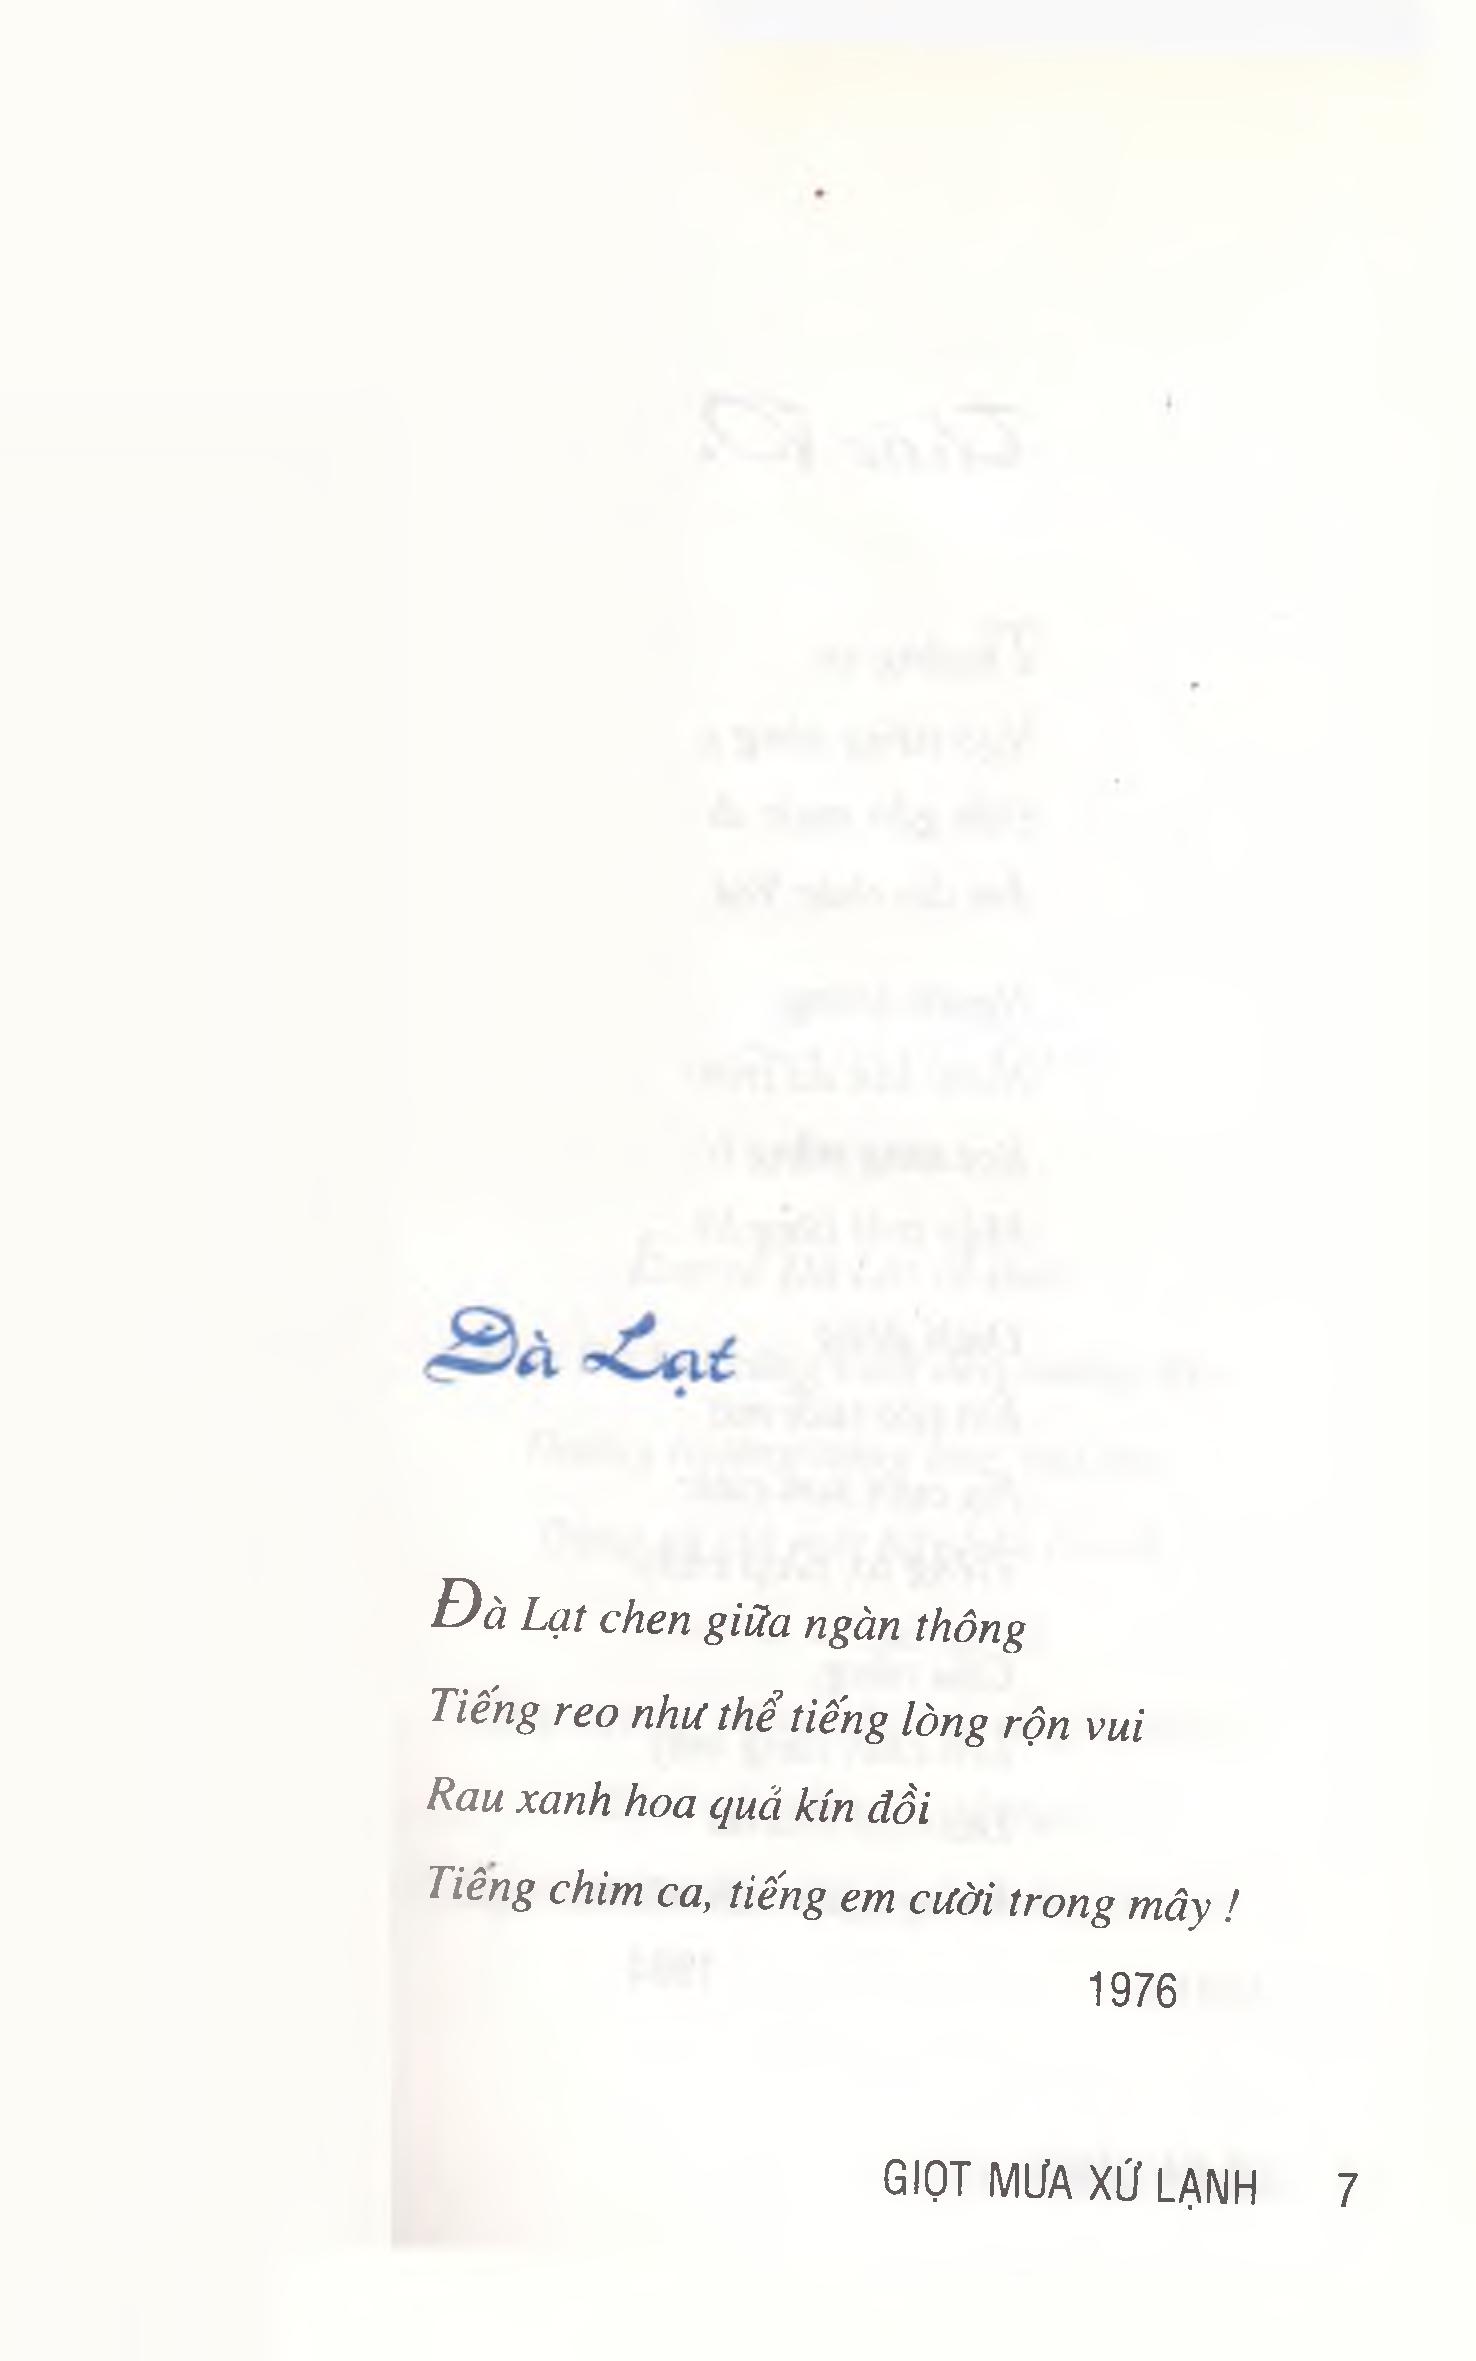 Đà Lạt
Đà Lạt chen giữa ngàn thông
Tiếng reo như thể tiếng lòng rộn vui
Rau xanh hoa quả kín đồi
Tiếng chim ca, tiếng em cười trong mây !
1976
GIỌT MƯA XỨ LẠNH 7